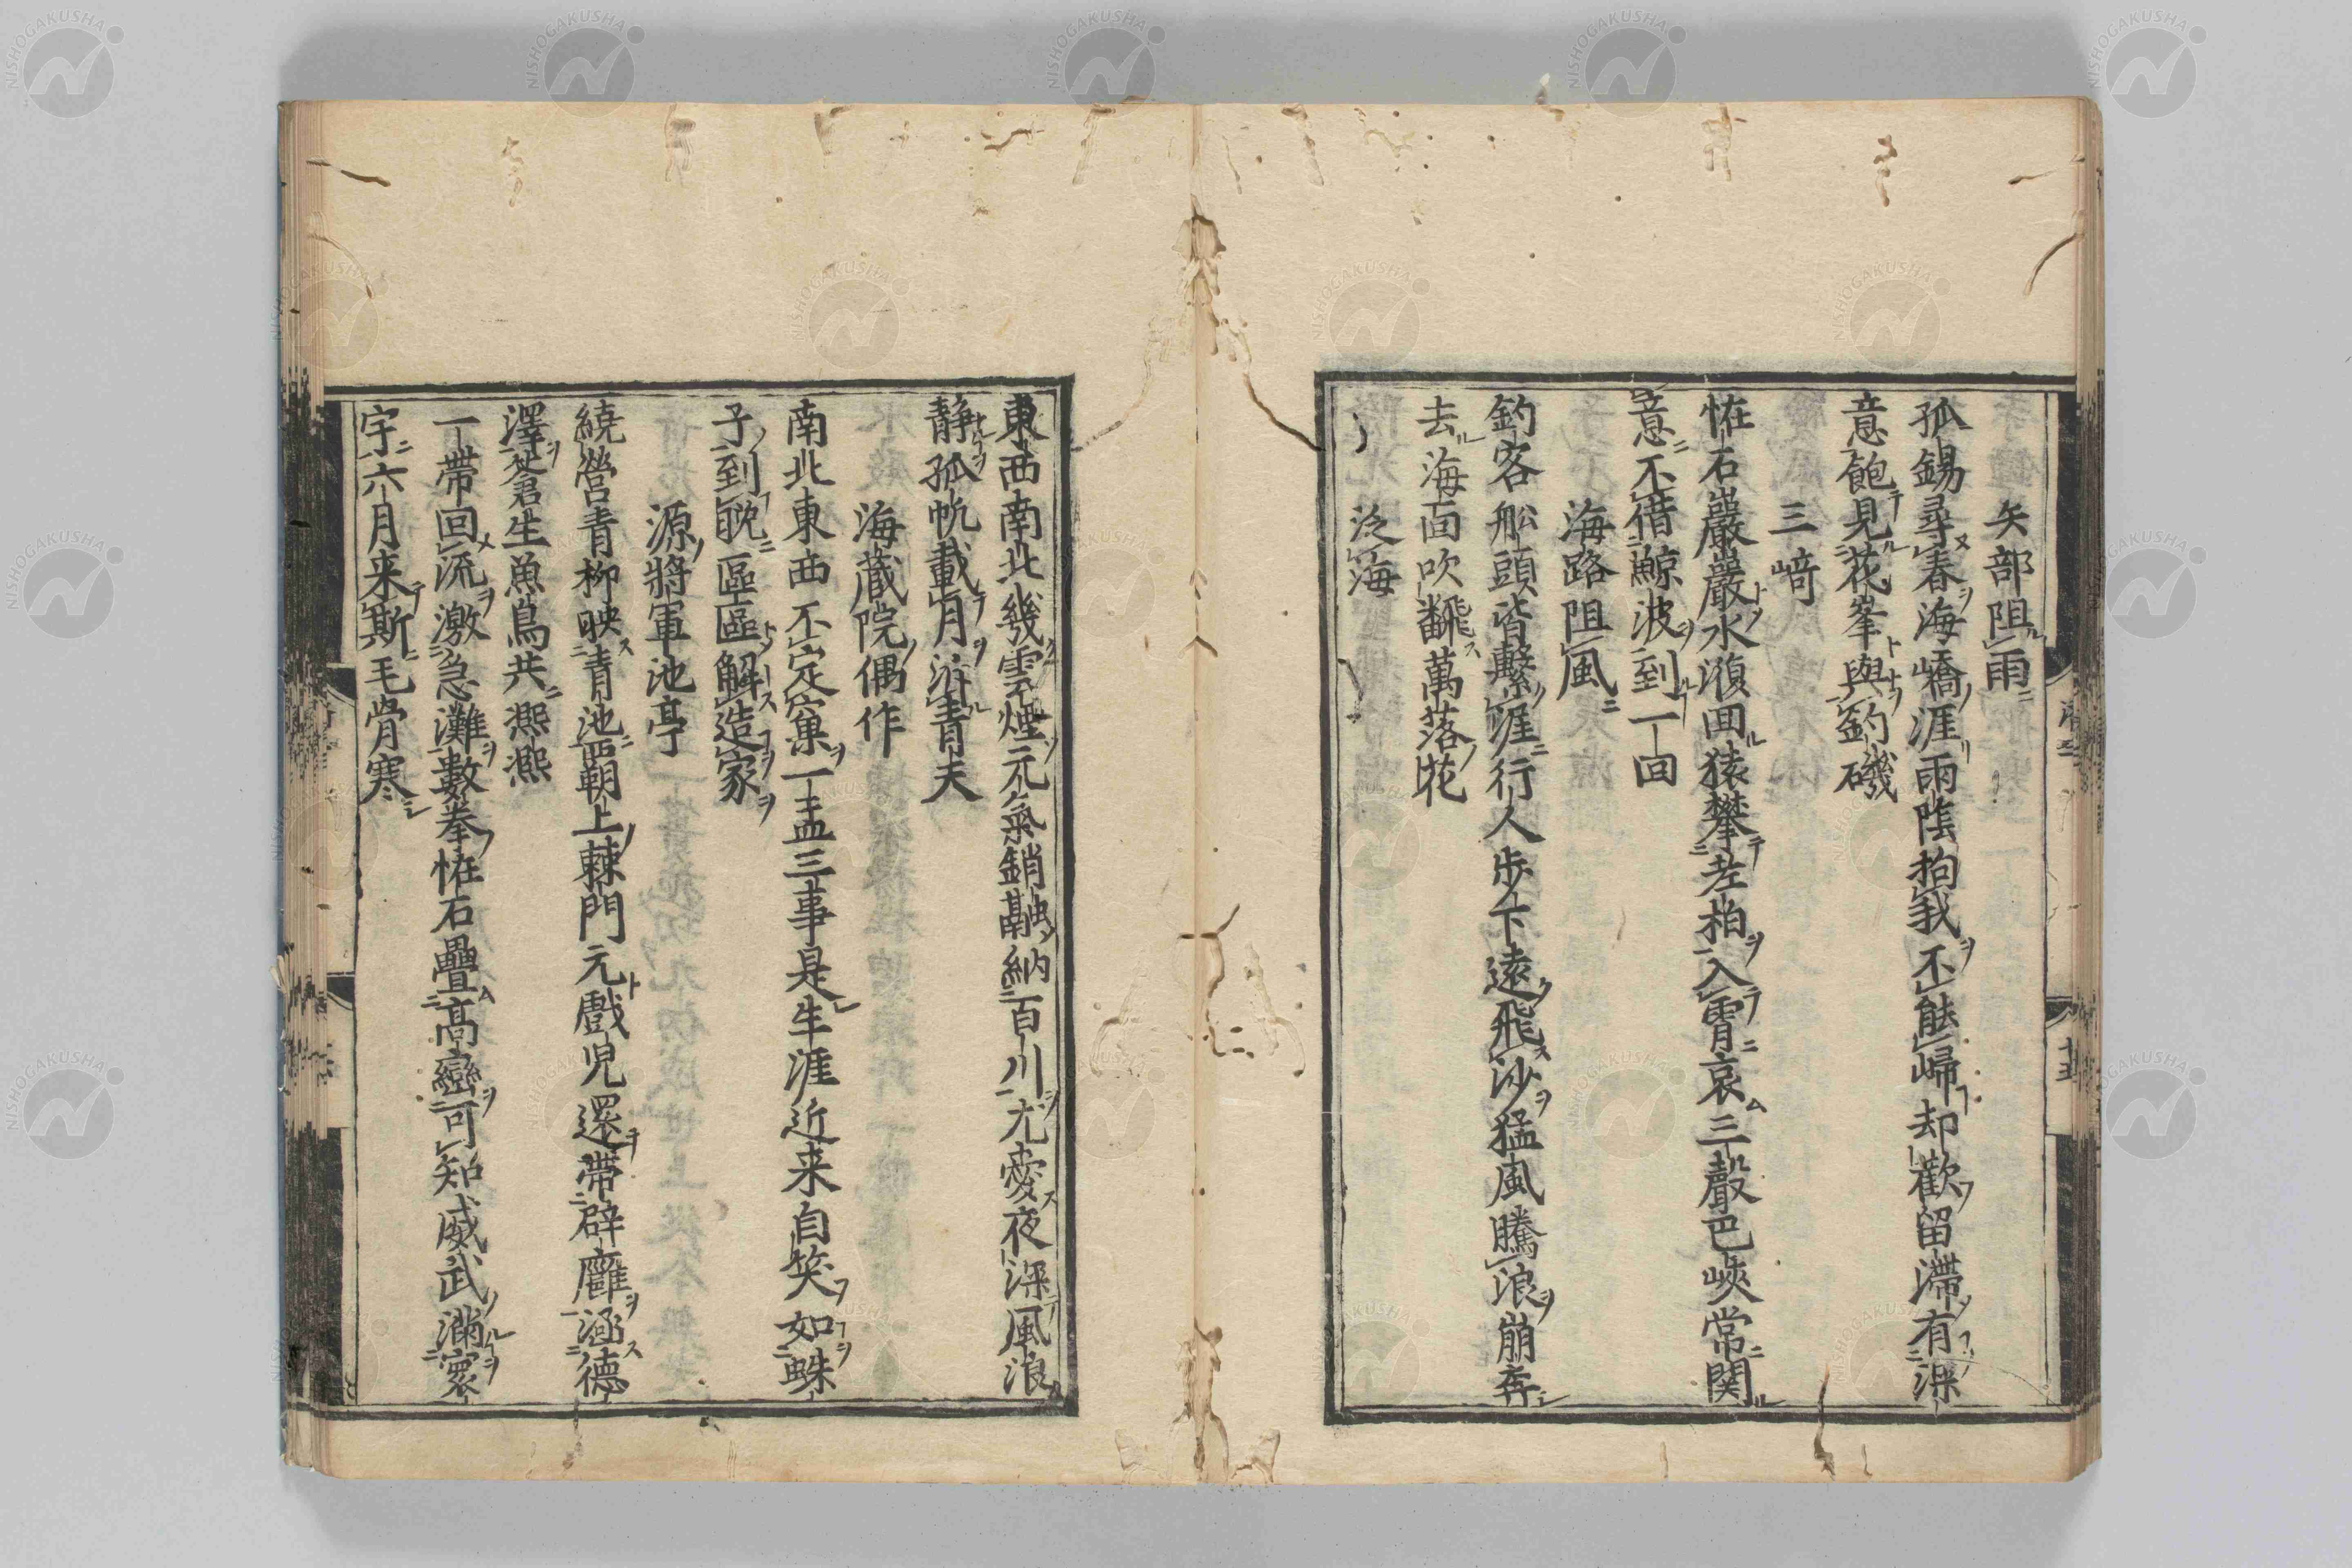 矢部阻雨
孤錫尋春海嶠涯雨陰拘我不能歸却歡留滯有深
意飽見花峯與釣磯
三﨑
恠石巖巖水澒囬猿攀老柏入霄哀三聲巴峽常関
意不借鯨波到一回
海路阻風
釣客舩頭皆繫涯行人歩下遠飛沙猛風騰浪崩奔
去海面吹飜萬落花
泛海
十五
東西南北幾雲煙元氣銷融納百川尤愛夜深風浪
静孤帆載月泝青天
海蔵院偶作
南北東西不定窠一盂三事是生涯近来自笑如蛛
子到処區區解造家
源將軍池亭
繞營青柳映青池覇上棘門元戲児還帯辟廱涵德
澤蒼生魚鳥共凞凞
一帯回流激急灘數拳恠石疊高巒可知威武滿寰
宇六月来斯毛骨寒